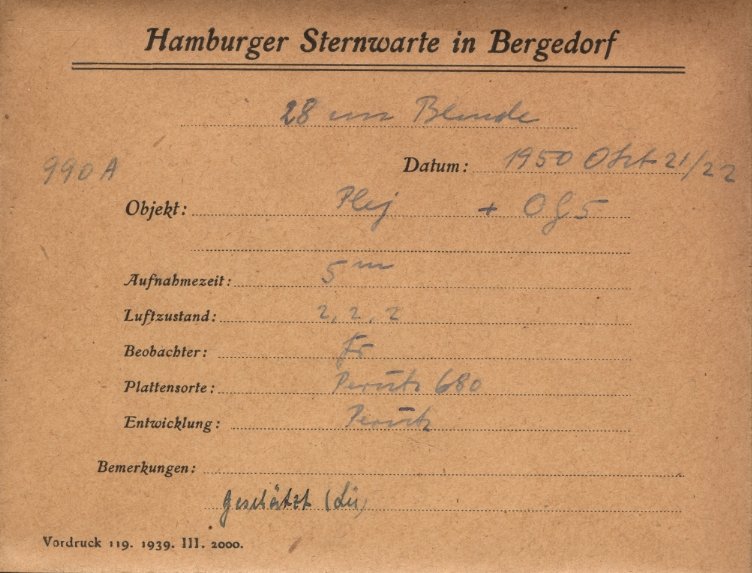 Hamburger Sternwarte in Bergedorf
28 cm Blende
990 A
Datum: 1950 Okt 21/22
Objekt: Plej + OG5
Aufnahmezeit: 5 m
Luftzustand: 2, 2, 2
Beobachter: Fr
Plattensorte: Perutz 680
Entwicklung: Perutz
Bemerkungen:
Geschätzt (Lü)
Vordruck 119. 1939. III. 2000.